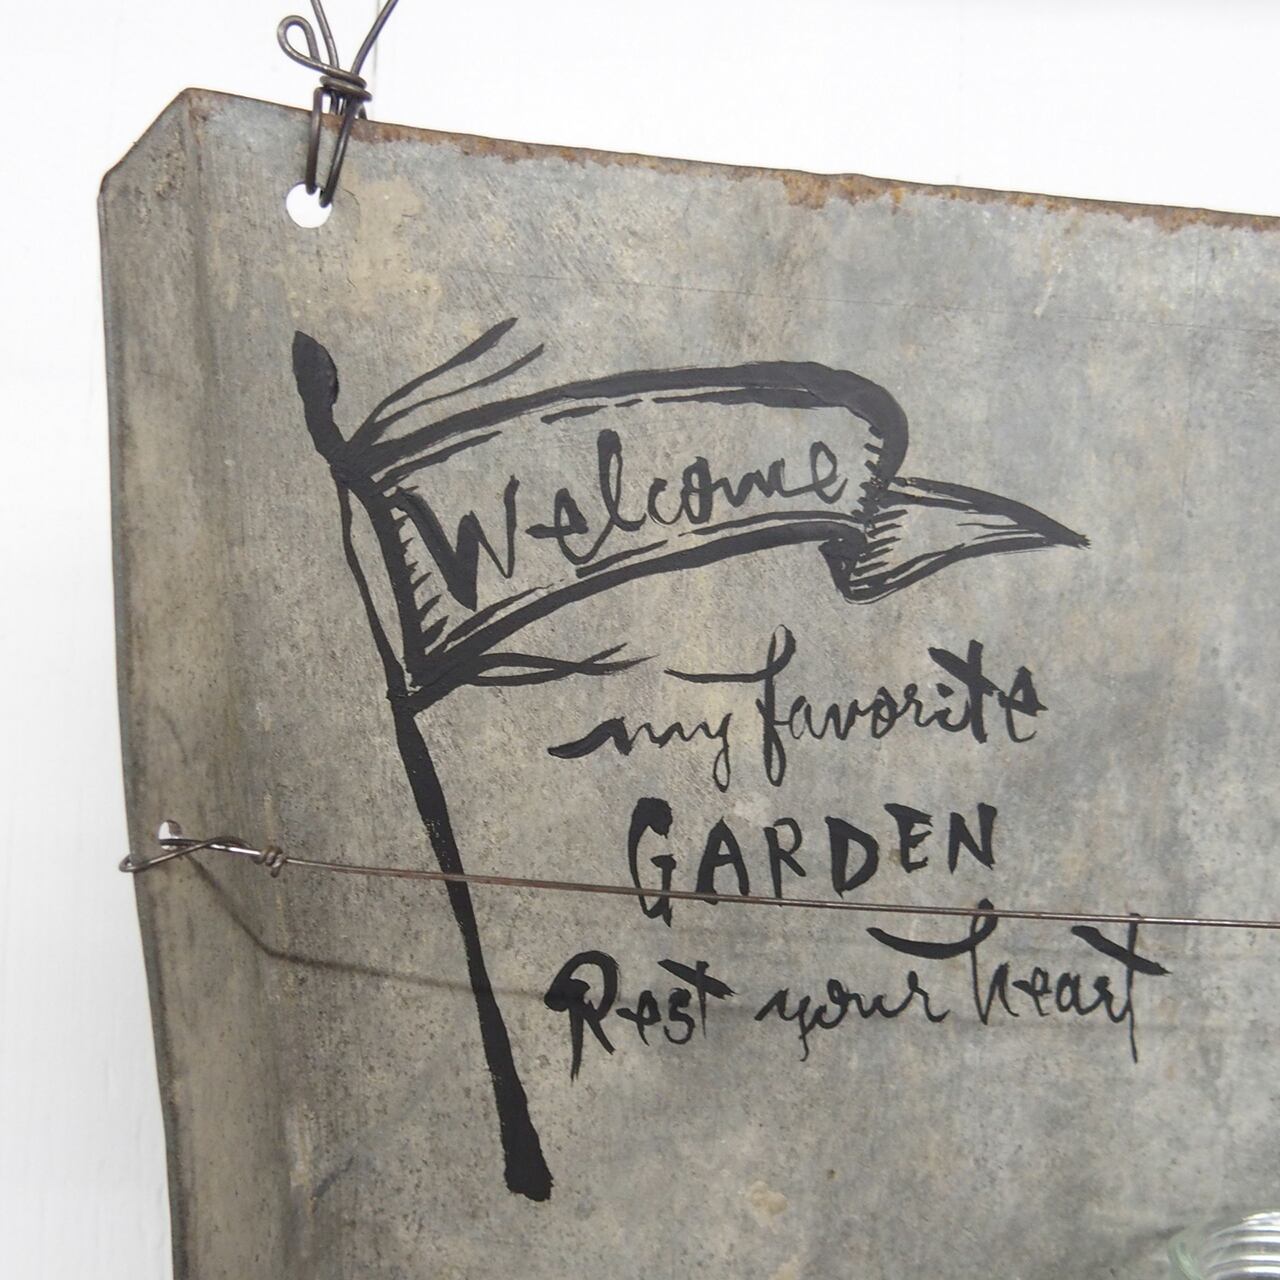 Welcome
my favorite
GARDEN
Rest your heart